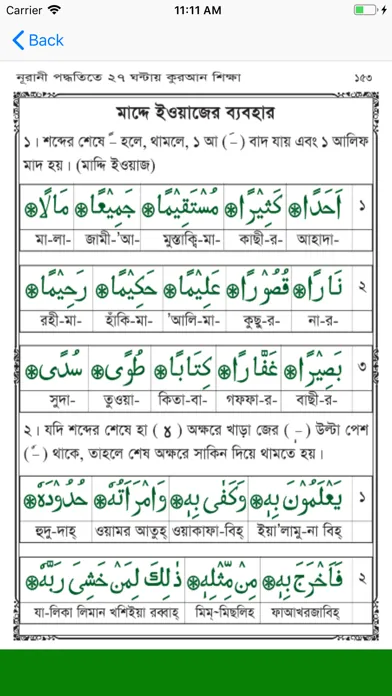 Carrier 11:11 AM
Back
নূরানী পদ্ধতিতে ২৭ ঘন্টায় কুরআন শিক্ষা ১৫৩
মাদ্দে ইওয়াজের ব্যবহার
১। শব্দের শেষে ً হলে, থামলে, ১ আ (َ) বাদ যায় এবং ১ আলিফ
মাদ হয়। (মাদ্দি ইওয়াজ)
اَحَدًا۞ كَثِيْرًا۞ مُسْتَقِيْمًا۞ جَمِيْعًا۞ مَالًا۞ ১
মা-লা- জামী-'আ- মুস্তাক্বি-মা- কাছী-র- আহাদা-
نَارًا۞ قُصُوْرًا۞ عَلِيْمًا۞ حَكِيْمًا۞ رَحِيْمًا۞ ২
রহী-মা- হাঁকি-মা- 'আলি-মা- কুছু-র- না-র-
بَصِيْرًا۞ غَفَّارًا۞ كِتَابًا۞ طُوًى۞ سُدًى۞ ৩
সুদা- তুওয়া- কিতা-বা- গফফা-র- বাছী-র-
২। যদি শব্দের শেষে হা (ه) অক্ষরে খাড়া জের (ٖ) উল্টা পেশ
(ٗ) থাকে, তাহলে শেষ অক্ষরে সাকিন দিয়ে থামতে হয়।
يَعْلَمُوْنَ بِهٖ۞ وَكَفٰى بِهٖ۞ وَامْرَاَتُهٗ۞ حُدُوْدَهٗ۞ ১
হুদু-দাহ্ ওয়ামর আতুহ্ ওয়াকাফা-বিহ্ ইয়া'লামু-না বিহ্
فَاَخْرَجَ بِهٖ۞ مِنْ مِّثْلِهٖ۞ ذٰلِكَ لِمَنْ خَشِىَ رَبَّهٗ۞ ২
যা-লিকা লিমান খশিইয়া রব্বাহ্ মিম্~মিছলিহ্ ফাআখরজাবিহ্